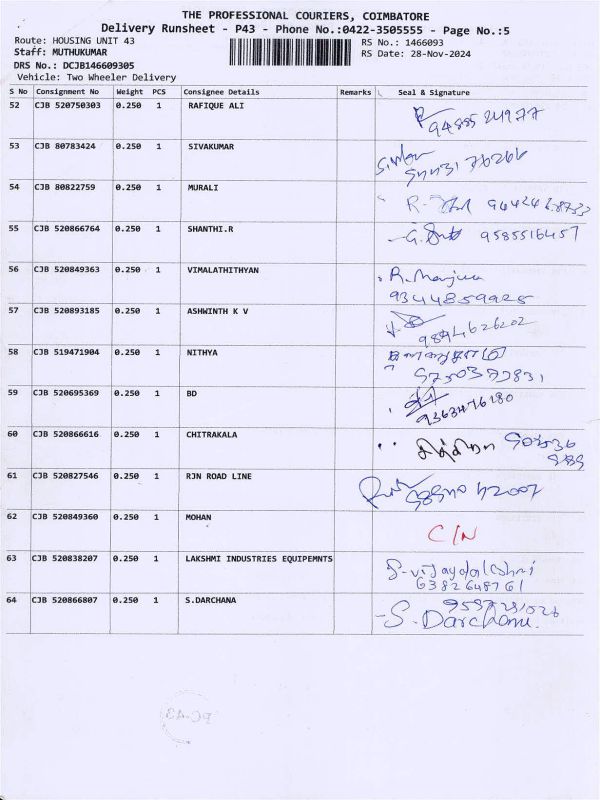 THE PROFESSIONAL COURIERS, COIMBATORE
Delivery Runsheet - P43 - Phone No.:0422-3505555 - Page No.:5
Route: HOUSING UNIT 43 RS No.: 1466093
Staff: MUTHUKUMAR RS Date: 28-Nov-2024
DRS No.: DCJB146609305
Vehicle: Two Wheeler Delivery
S No Consignment No Weight PCS Consignee Details Remarks Seal & Signature
52 CJB 520750303 0.250 1 RAFIQUE ALI
53 CJB 80783424 0.250 1 SIVAKUMAR
54 CJB 80822759 0.250 1 MURALI
55 CJB 520866764 0.250 1 SHANTHI.R 9585516457
56 CJB 520849363 0.250 1 VIMALATHITHYAN R. Manjula
9344859925
57 CJB 520893185 0.250 1 ASHWINTH K V
9894626202
58 CJB 519471904 0.250 1 NITHYA
59 CJB 520695369 0.250 1 BD
9363476180
60 CJB 520866616 0.250 1 CHITRAKALA சித்திரா
61 CJB 520827546 0.250 1 RJN ROAD LINE
62 CJB 520849360 0.250 1 MOHAN C/N
63 CJB 520838207 0.250 1 LAKSHMI INDUSTRIES EQUIPEMNTS S. Vijayalakshmi
6382648761
64 CJB 520866807 0.250 1 S.DARCHANA
S. Darchana.
PC-43